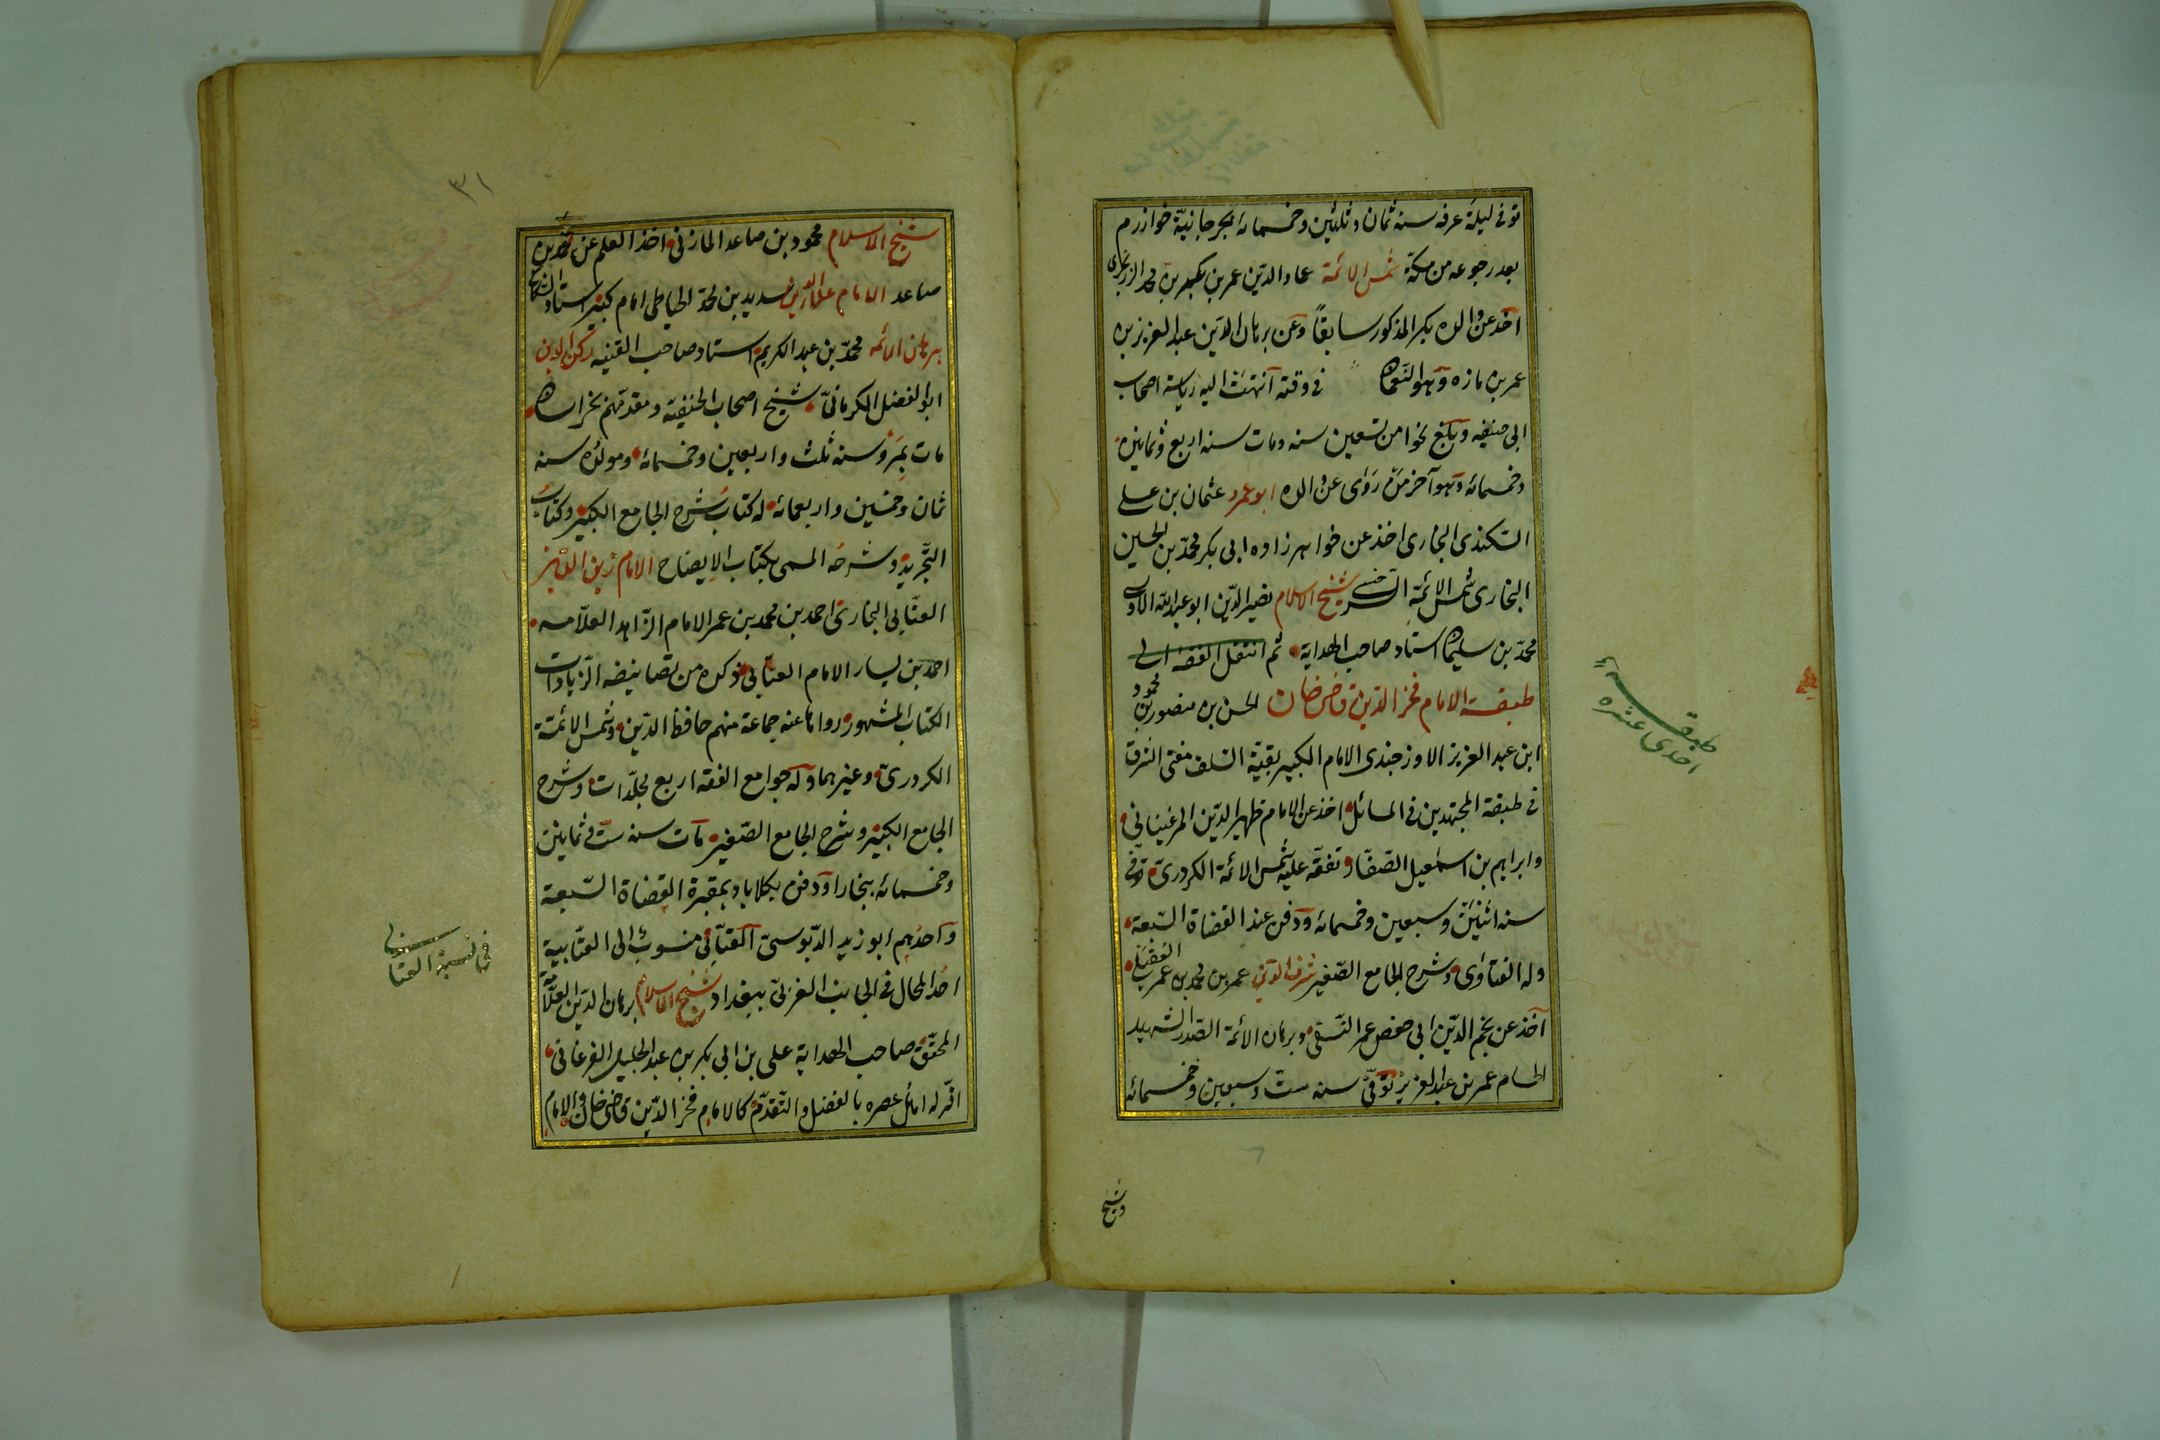 توفى ليلة عرفه سنه ثمان وثلثين وخمسمائه بجرجانيّة خوارزم
بعد رجوعه من مكّة شمس الائمّة عماد الدّين عمر بن بكر بن محمد الزرنجرى
اخذ عن والده بكر المذكور سابقاً وعن برهان الدّين عبد العزيز بن
عمر بن مازه وهو النّعمان فى وقته انتهت اليه رياسة اصحاب
ابى حنيفه وبلغ نحوا من تسعين سنه ومات سنه اربع وثمانين
وخمسمائه وهو آخر من روى عن والده ابو عمرو عثمان بن على
البيكندى البخارى اخذ عن خواهر زاده ابى بكر محمّد بن الحسين
البخارى شمس الائمّة السّرخسى شيخ الاسلام نصير الدّين ابو عبد الله
محمّد بن سليمان استاد صاحب الهداية ثم انتقل الفقه الى
طبقة الامام فخر الدّين قاضى خان الحسن بن منصور بن محمود
ابن عبد العزيز الاوزجندى الامام الكبير بقيّة السّلف مفتى الشرق
فى طبقة المجتهدين فى المسائل اخذ عن الامام ظهير الدّين المرغينانى
وابراهيم بن اسمعيل الصّفار وتفقّه عليه شمس الائمّة الكردرىّ توفى
سنه اثنين وسبعين وخمسمائه ودفن عند القضاة السّبعة
وله الفتاوى وشرح الجامع الصّغير شرف الدّين عمر بن محمد بن عمر العقيلى
اخذ عن نجم الدّين ابى حفص عمر النّسفى وبرهان الائمّة الصّدر الشهيد
الحسام عمر بن عبد العزيز توفىّ سنه ستّ وسبعين وخمسمائه
وشيخ
طبقه
احدى عشره
٣١
شيخ الاسلام محمود بن صاعد المازنى اخذ العلم عن محمّد بن
صاعد الامام علاء الدّين سديد بن محمّد الحياطى امام كبير استاد
برهان الائمّه محمّد بن عبد الكريم استاد صاحب القنيه ركن الدين
ابو الفضل الكرمانىّ شيخ اصحاب الحنفيّة ومقدّمهم بخراسان
مات بمرو سنه ثلث واربعين وخمسمائه ومولده سنه
ثمان وخمسين واربعمائه له كتاب شرح الجامع الكبير وكتاب
التّجريد وشرحه المسمى بكتاب الايضاح الامام زين الدّين
العتّابى البخارىّ احمد بن محمد بن عمر الامام الزّاهد العلّامه
احمد بن يسار الامام العتّابى ذكره من تصانيفه الزّيادات
الكتاب المشهور رواها عنه جماعة منهم حافظ الدّين وشمس الائمّة
الكردرىّ وغيرهما وله جوامع الفقه اربع مجلّدات وشرح
الجامع الكبير وشرح الجامع الصّغير مات سنه ست وثمانين
وخمسمائه ببخارا ودفن بكلاباد بمقبرة القضاة السّبعة
واحدهم ابو زيد الدّبوسىّ العتّابى منسوب الى العتّابية
احد المحال فى الجانب الغربىّ ببغداد شيخ الاسلام برهان الدّين العلّامة
المحقّق صاحب الهداية على بن ابى بكر بن عبد الجليل الفرغانى
اقرّ له اهل عصره بالفضل والتّقدّم كالامام فخر الدّين قاضى خان والامام
فى نسبة العتابى